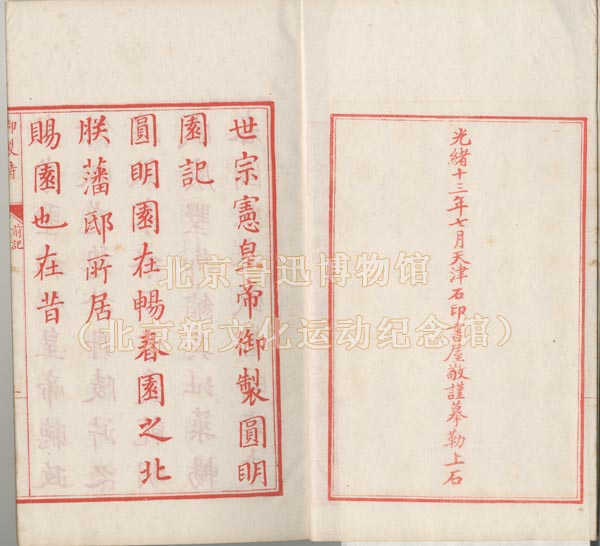 光緒十三年七月天津石印書屋敬謹摹勒上石
世宗憲皇帝御製圓明
園記
圓明園在暢春園之北
朕藩邸所居
賜園也在昔
御製詩
前記
北京鲁迅博物馆
（北京新文化运动纪念馆）